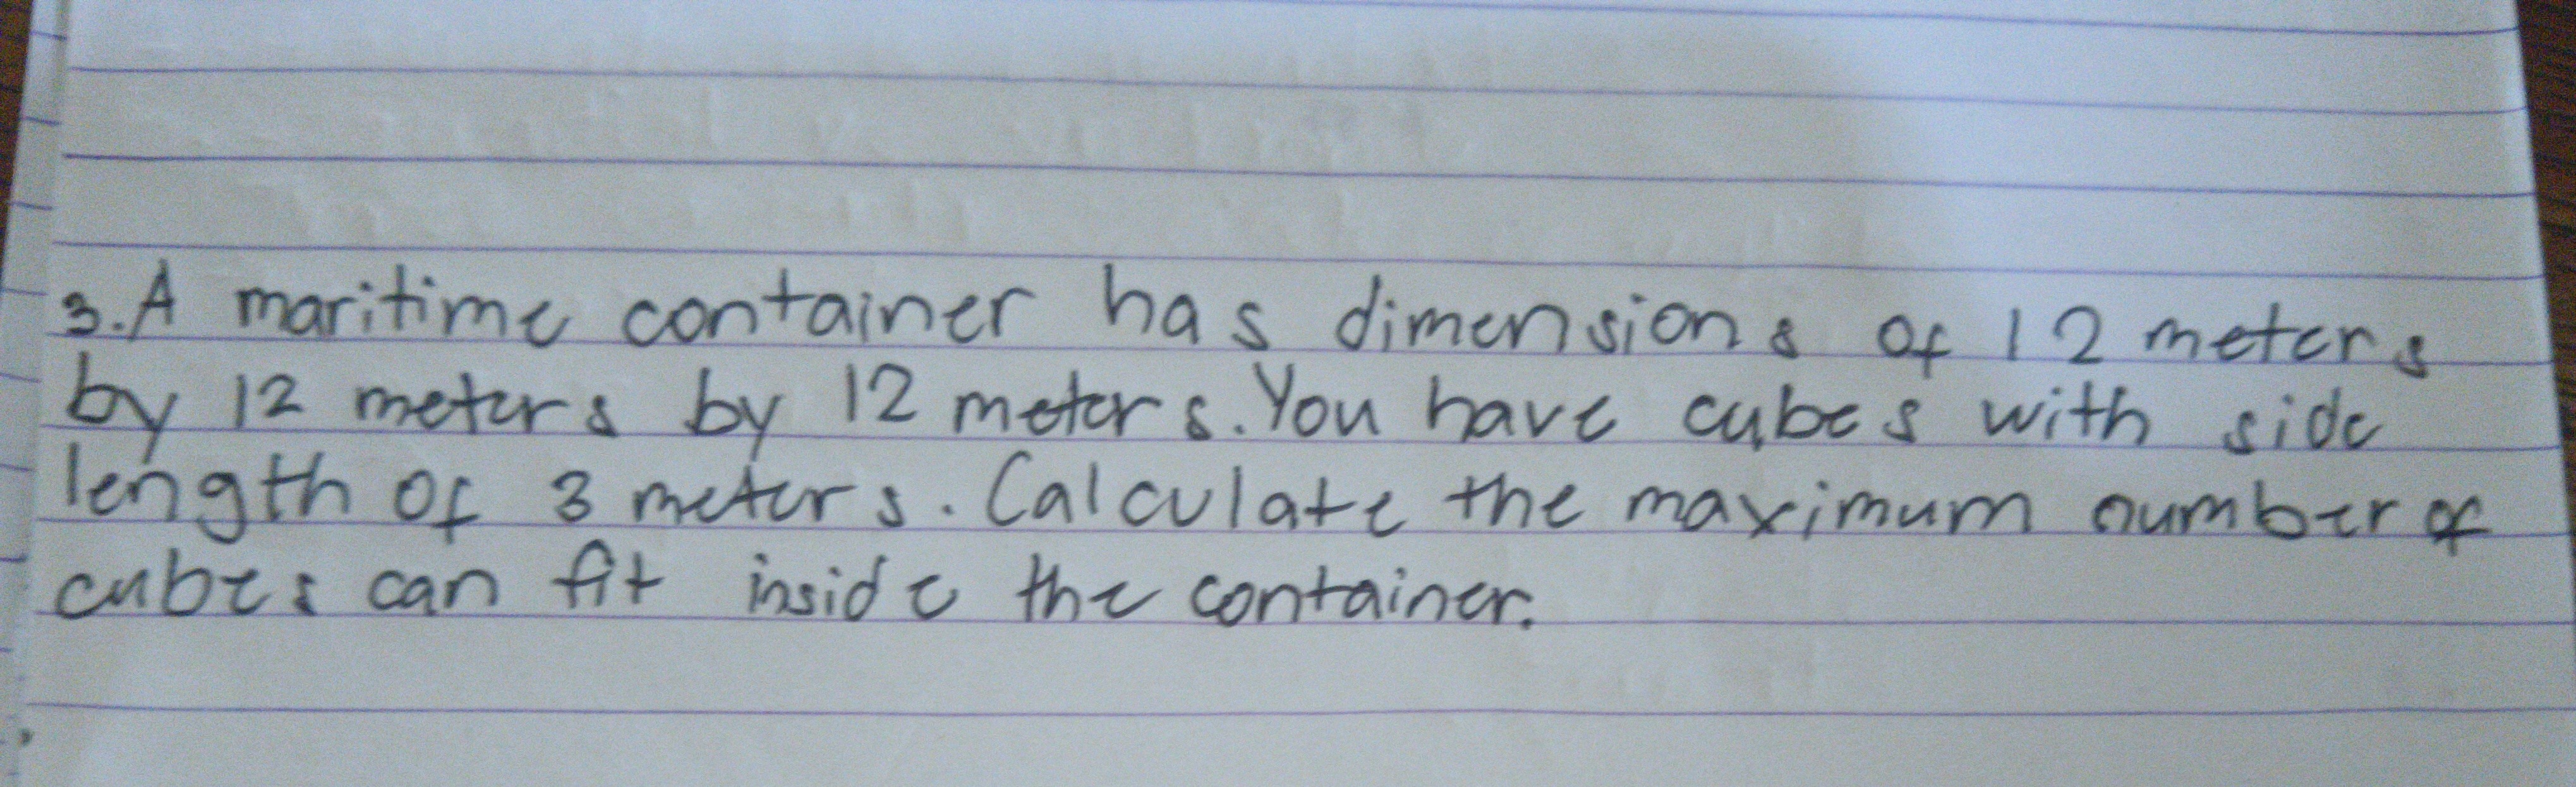 3. A maritime container has dimensions of 12 meters
by 12 meters by 12 meters. You have cubes with side
length of 3 meters. Calculate the maximum number of
cubes can fit inside the container.